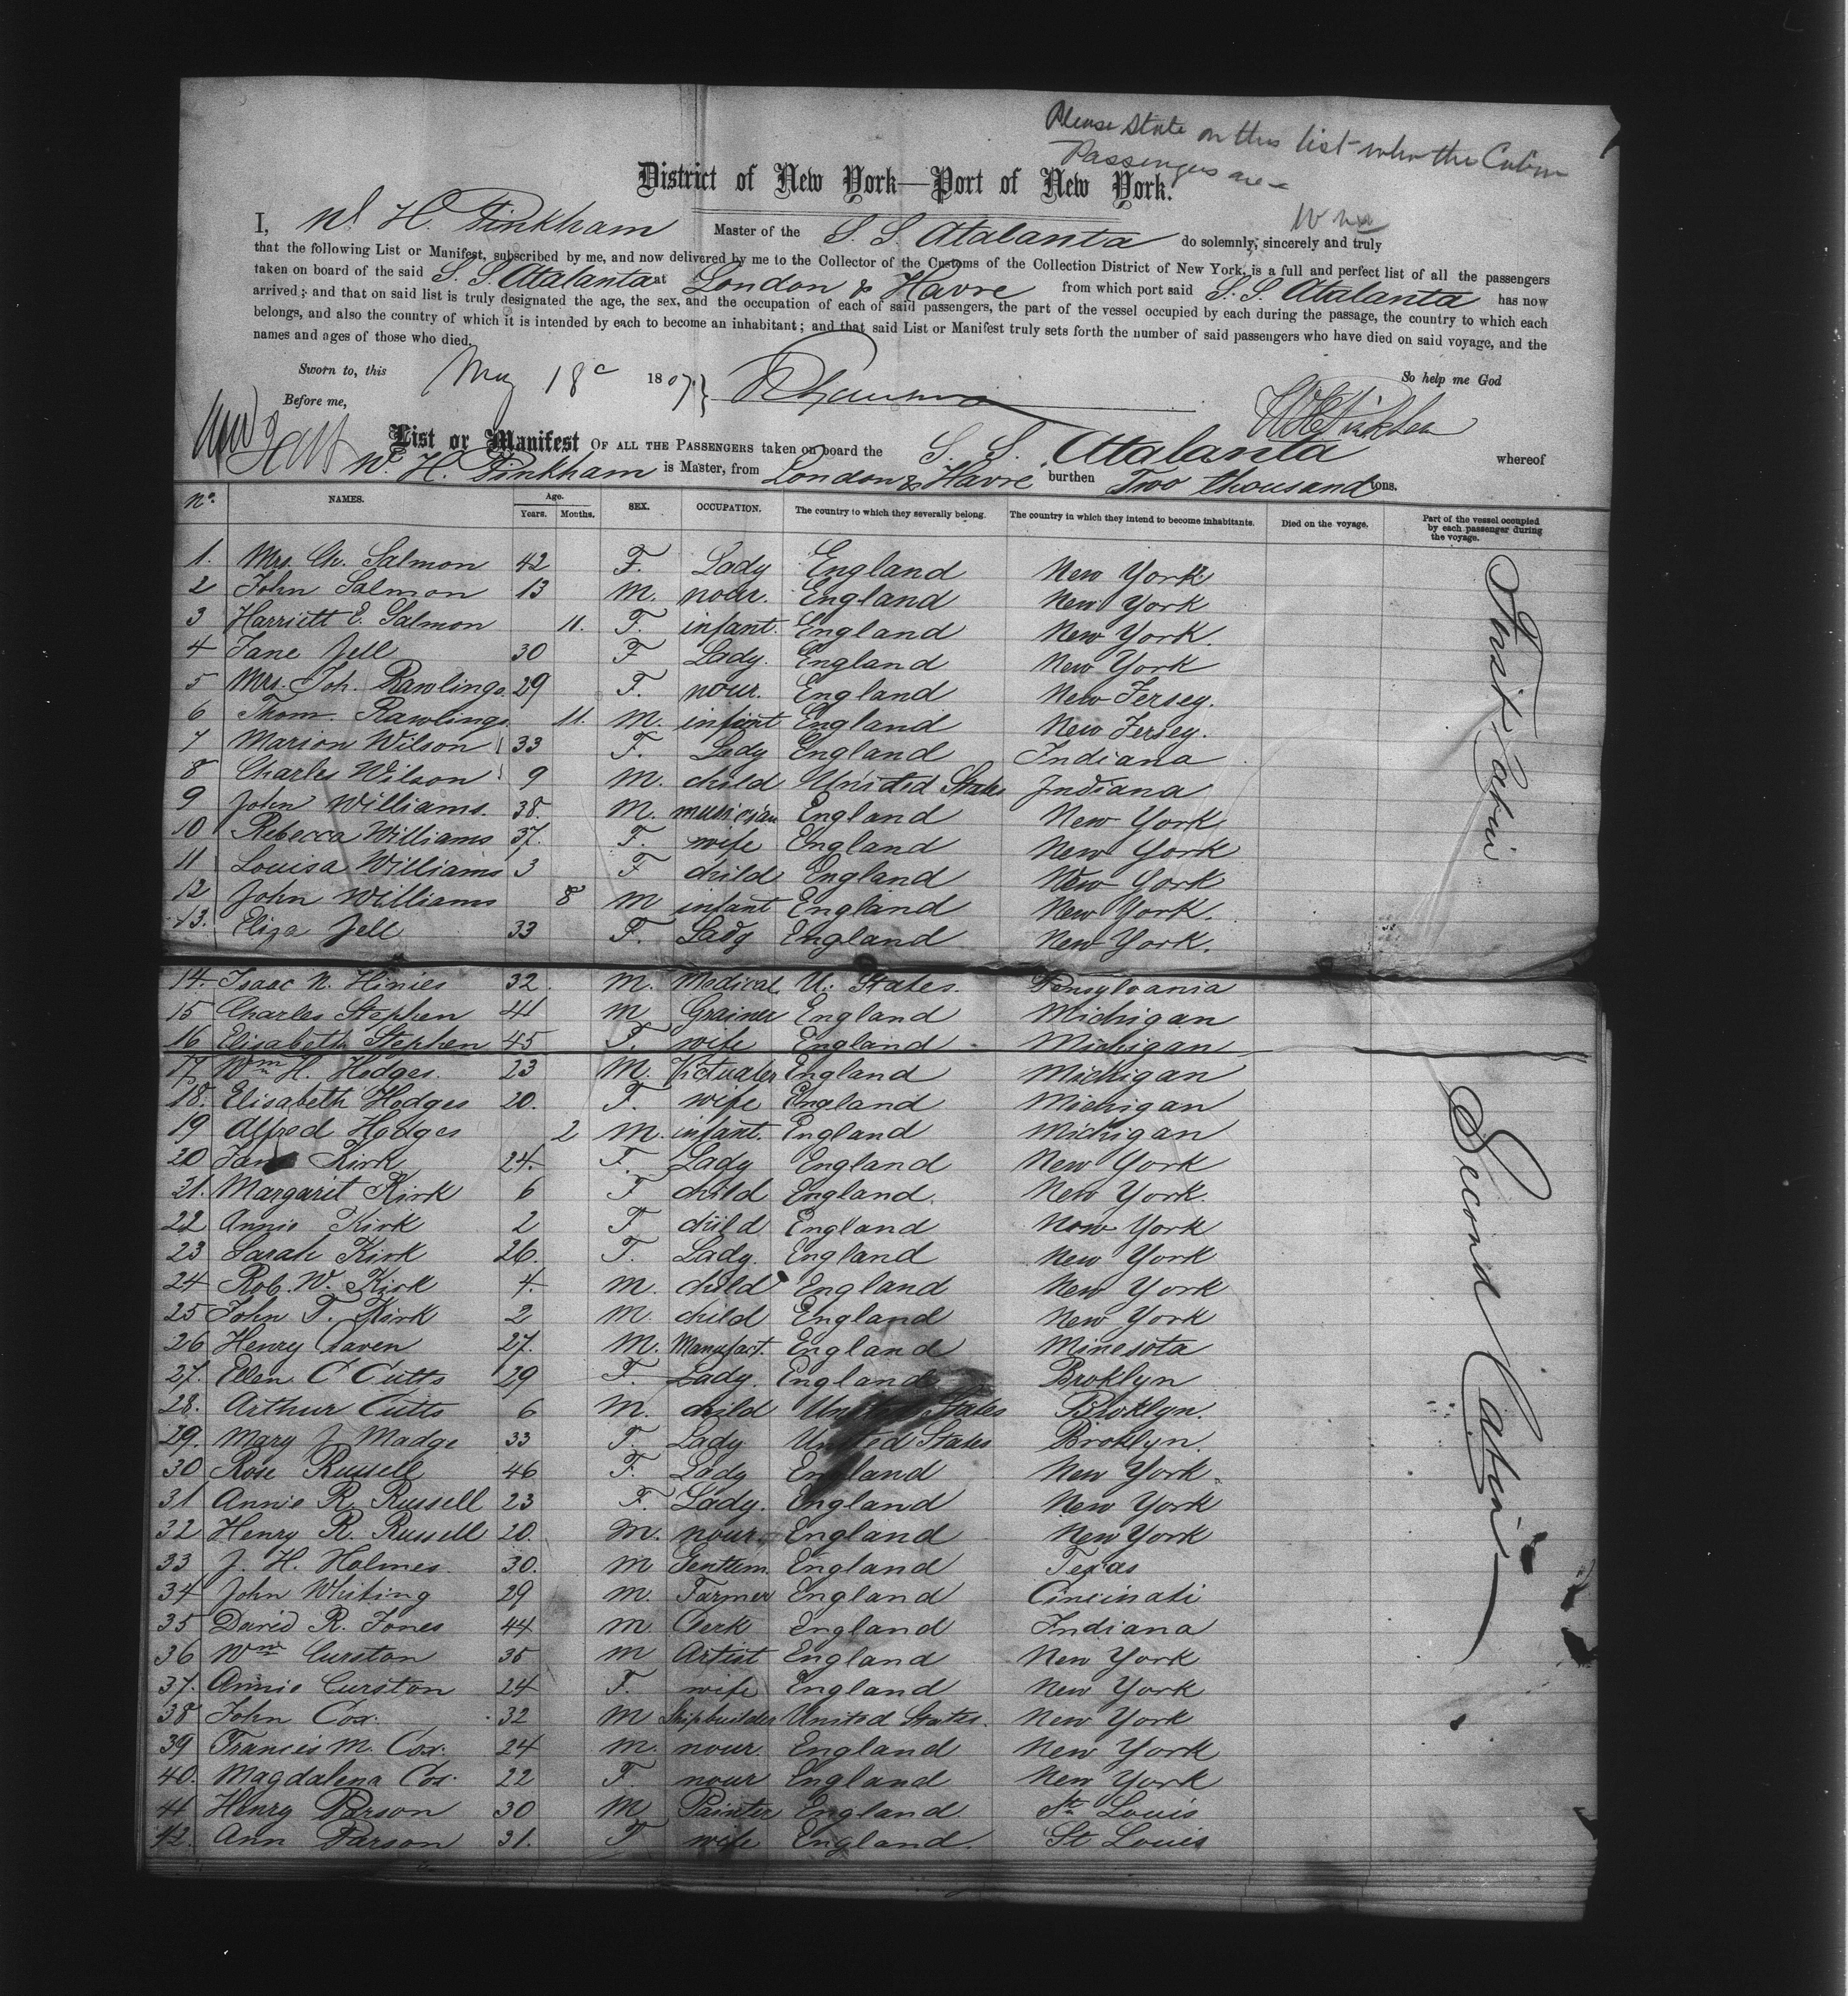 Please state on this list who the Cabin
Passengers are
District of New York—Port of New York.
I, Wm H. Pinkham Master of the S. S. Atalanta do solemnly, sincerely and truly
that the following List or Manifest, subscribed by me, and now delivered by me to the Collector of the Customs of the Collection District of New York, is a full and perfect list of all the passengers
taken on board of the said S. S. Atalanta at London & Havre from which port said S. S. Atalanta has now
arrived; and that on said list is truly designated the age, the sex, and the occupation of each of said passengers, the part of the vessel occupied by each during the passage, the country to which each
belongs, and also the country of which it is intended by each to become an inhabitant; and that said List or Manifest truly sets forth the number of said passengers who have died on said voyage, and the
names and ages of those who died.
Sworn to, this May 18 1867 So help me God
Before me, W H Pinkham
List or Manifest OF ALL THE PASSENGERS taken on board the S. S. Atalanta whereof
Wm H. Pinkham is Master, from London & Havre burthen Two thousand tons.
No. NAMES. Age. Years. Months. SEX. OCCUPATION. The country to which they severally belong. The country in which they intend to become inhabitants. Died on the voyage. Part of the vessel occupied by each passenger during the voyage.
1. Mrs. Ch. Salmon 42 F. Lady England New York
2 John Salmon 13 M. nour. England New York
3 Harriett E. Salmon 11. F. infant. England New York.
4 Jane Jell 30 F Lady. England New York
5 Mrs. Joh. Rawlings 29 F. nour. England New Jersey.
6 Thom. Rawlings 11. M. infant England New Jersey.
7 Marion Wilson 33 F. Lady England Indiana
8 Charles Wilson 9 M. child United States Indiana
9 John Williams. 38. M. musician England New York
10 Rebecca Williams 37. F. wife England New York
11 Louisa Williams 3 F child England New York
12 John Williams 8 M infant England New York.
13. Eliza Jell 33 F. Lady England New York.
First Cabin
14. Isaac N. Hinies 32. M. Medical. U. States. Pensylvania
15 Charles Stephen 41 M Grainer England Michigan
16 Elisabeth Stephen 45 F. wife England Michigan
17 Wm H. Hodges. 23 M. Victualer England Michigan
18. Elisabeth Hodges 20. F. wife England Michigan
19 Alfred Hodges 2 M. infant. England Michigan
20 Jane Kirk 24. F. Lady England New York
21. Margarit Kirk 6 F child England. New York.
22 Annie Kirk 2 F. child England New York
23 Sarah Kirk 26. F. Lady. England New York
24 Rob. W. Kirk 4. M. child England New York
25 John T. Kirk 2 M. child England New York
26 Henry Caven 27. M. Manufact. England Minesota
27. Ellen C Cutts 29 F. Lady. England Broklyn
28. Arthur Cutts 6 M. child United States Broklyn.
29. Mary J Madge 33 F. Lady United States Broklyn.
30 Rose Russell 46 F. Lady England New York
31 Annie R. Russell 23 F. Lady. England New York
32 Henry R. Russell 20. M. nour. England New York
33 J. H. Holmes. 30. M Gentlem. England Texas
34 John Whiting 29 M. Farmer England Cincinati
35 David R. Jones 44 M. Clerk England Indiana
36 Wm Curston 35 M Artist England New York
37. Annie Curston 24 F. wife England New York
38 John Cox. 32 M Shipbuilder United States. New York
39 Francis M. Cox. 24 M. nour. England New York
40. Magdalena Cox. 22 F. nour England New York
41 Henry Parson 30 M Painter England. St. Louis
42. Ann Parson 31. F wife England. St Louis
Second Cabin